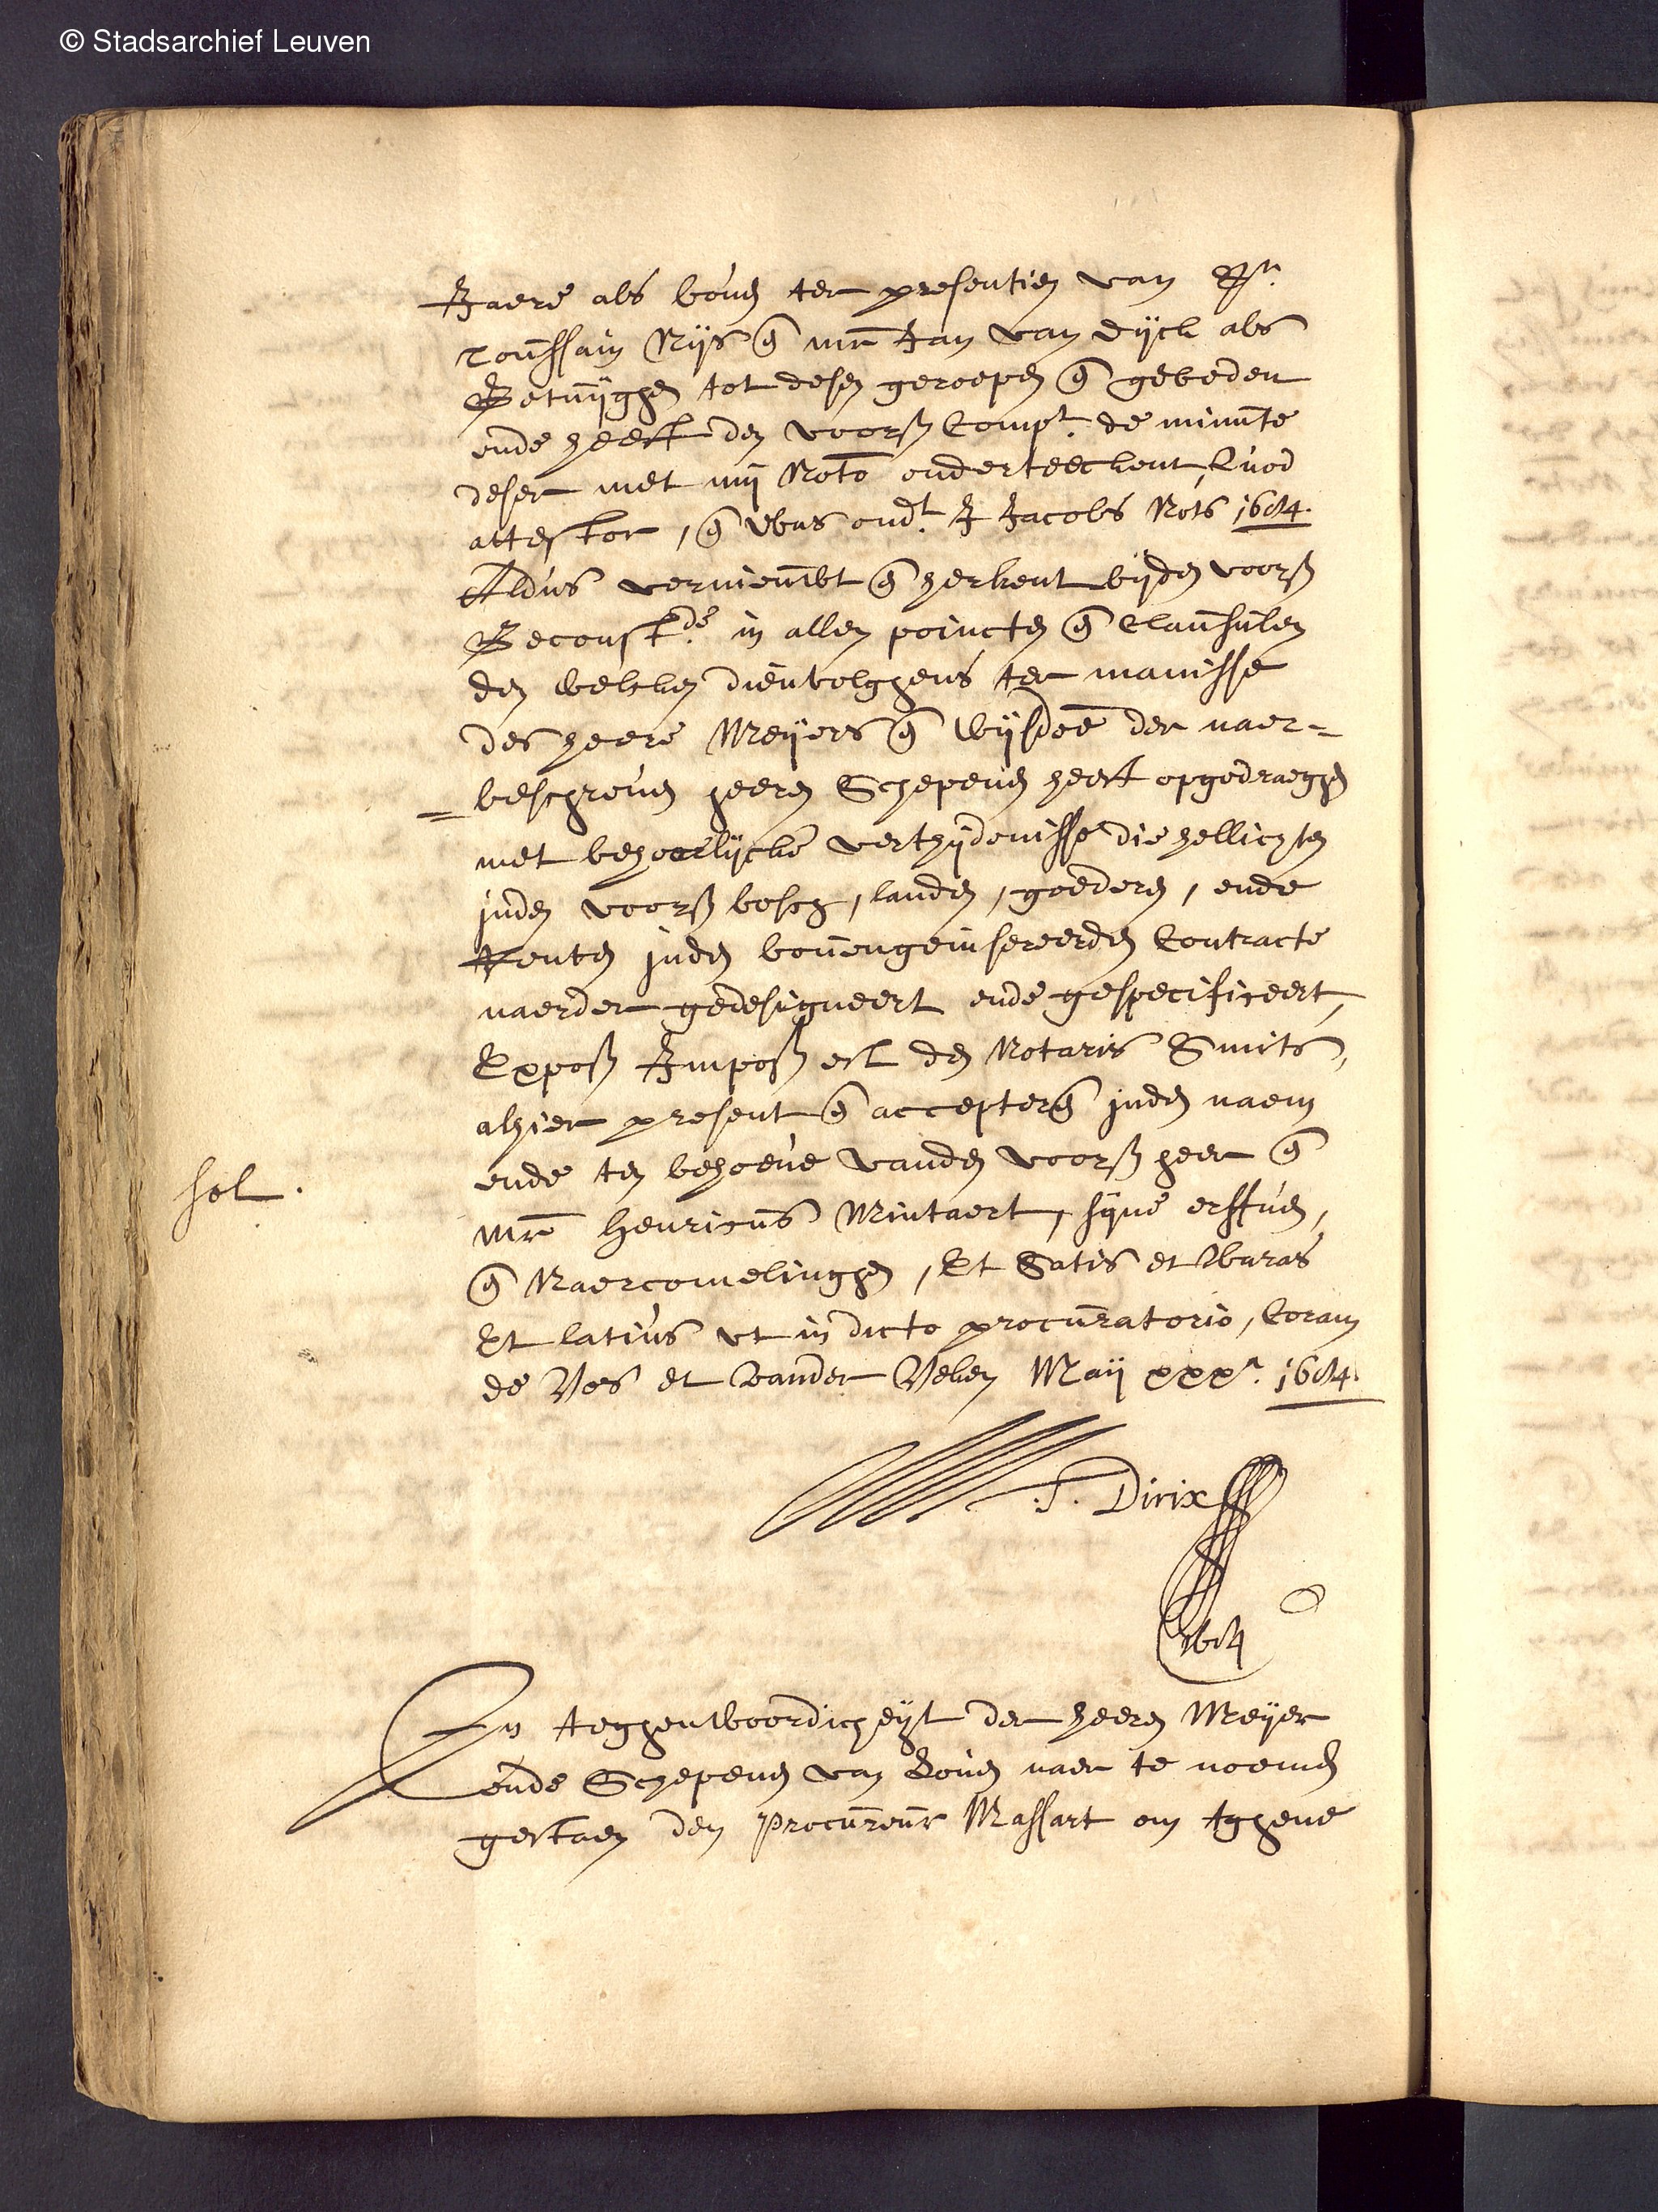 © Stadsarchief Leuven
Jaere als boven ter presentien van Sr.
Toussain Nijs en[de] mr Jan van Dijck als
Getuijghen tot desen geroepen en[de] gebeden
ende heeft den voors Compt. de minute
deser met mij Noto onderteeckent, Quod
attestor, en[de] was ondt. J Jacobs Nots 1684.
Aldus vernieuwt en[de] herkent bijden voors
Geconstde. in allen poincten en[de] Clausulen
den welcken dienvolghens ter manisse
des heere Meijers en[de] wijsdoe der naer=
=beschreven heeren Schepenen heeft opgedraeghen
met behoorlijcke verthijdenisse die hellichten
inden voors bosch, landen, goederen, ende
Renten inden bovengeinsereerden Contracte
naerder gedesigneert ende gespecificeert,
Expos Impos est den Notaris Smits,
alhier present en[de] accepteren[de] inden naem
ende ten behoeve vanden voors heer en[de]
mr Henricus Mintaert, sijne erffven,
en[de] Naercomelinghen, Et Satis et Waras
Et latius ut in dicto procuratorio, Coram
de Vos et Vander Veken Maij xxxa. 1684.
sol.
J. Dirix
1684
In teghenwoordicheijt der heeren Meijer
ende Schepenen van Loven naer te noemen
gestaen den Procureur Massart om tghene